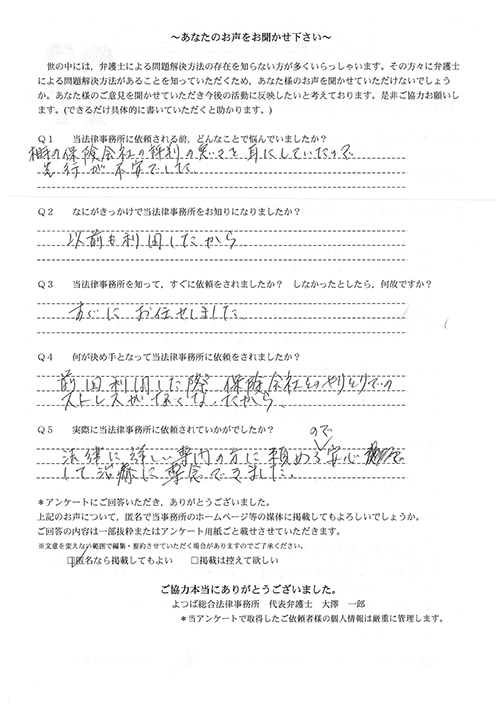 ～あなたのお声をお聞かせ下さい～
世の中には，弁護士による問題解決方法の存在を知らない方が多くいらっしゃいます。その方々に弁護士
による問題解決方法があることを知っていただくため，あなた様のお声を聞かせていただけないでしょう
か。あなた様のご意見をお聞かせいただき今後の活動に反映したいと考えております。是非ご協力お願いし
ます。(できるだけ具体的に書いていただくと助かります。)
Q1 当法律事務所に依頼される前，どんなことで悩んでいましたか？
相手の保険会社の評判の悪いさを耳にしていたので
先行が不安でした
Q2 なにがきっかけで当法律事務所をお知りになりましたか？
以前も利用したから
Q3 当法律事務所を知って，すぐに依頼をされましたか？ しなかったとしたら，何故ですか？
すぐに お任せしました
Q4 何が決め手となって当法律事務所に依頼をされましたか？
前回利用した際 保険会社とのやりとりでの
ストレスがなくなったから
Q5 実際に当法律事務所に依頼されていかがでしたか？
法律に詳しい専門の方に頼めるので安心
して治療に専念できました。
＊アンケートにご回答いただき，ありがとうございました。
上記のお声について，匿名で当事務所のホームページ等の媒体に掲載してもよろしいでしょうか。
ご回答の内容は一部抜粋またはアンケート用紙ごと載せさせていただきます。
※文意を変えない範囲で編集・要約させていただく場合がありますのでご了承ください。
☑匿名なら掲載してもよい □掲載は控えて欲しい
ご協力本当にありがとうございました。
よつば総合法律事務所 代表弁護士 大澤 一郎
＊当アンケートで取得したご依頼者様の個人情報は厳重に管理します。